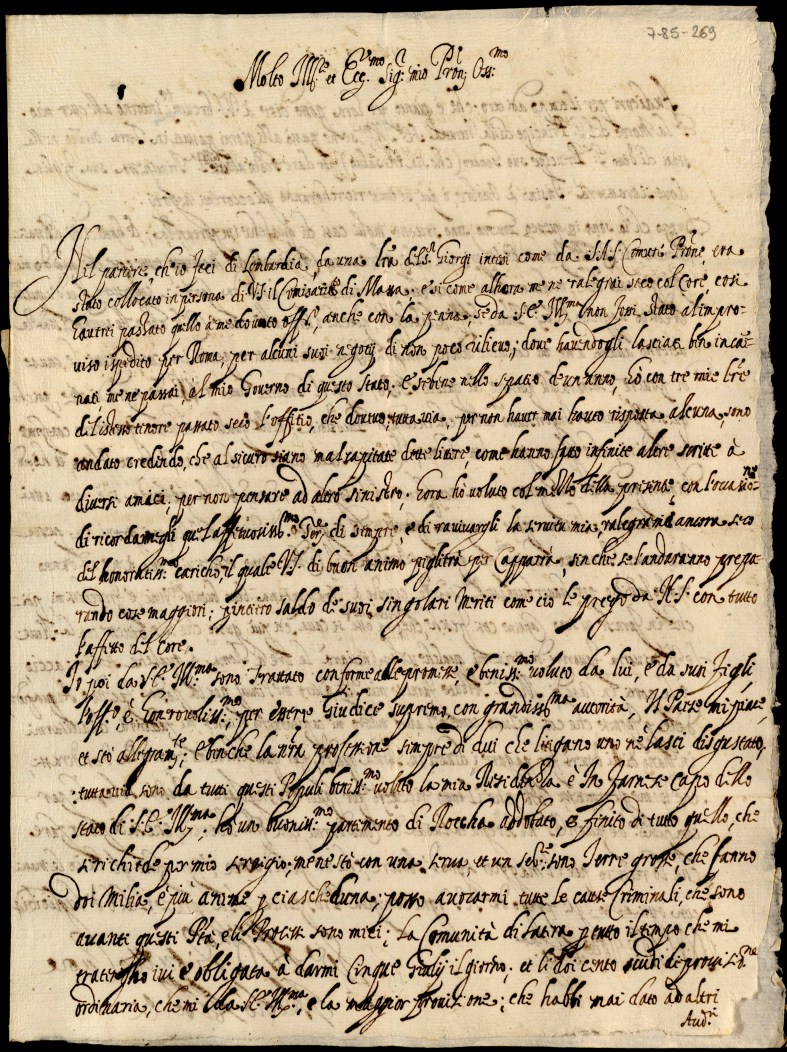 7-85-269
Molto Ill.re et Ecc.mo Sig.r mio Pron. Oss.mo
Nel partire, che io feci di Lombardia, da una l'ra del S.r Giorgi intesi come da S.A.S. Comune Prone, era
stato collocato in persona di VS il Comisariato di Massa. e si come alhora me ne ralegrai seco col Core, così
havrei passato quello à me dovuto off.o, anche con la penna, se da S.E. Ill.ma non fossi stato al impro-
viso ispedito per Roma, per alcuni suoi negotij di non poco rilievo; dove havendogli lasciati ben incami-
nati me ne passai, al mio Governo di questo stato; E sebene nello spatio d'un anno, hò con tre mie l're
del istesso tenore passato seco l'offitio, che dovevo, tuttavia, per non haver mai havuto risposta alcuna, sono
andato credendo, che al sicuro siano mal capitate dette lettere, come hanno fatto infinite altre scritte à
diversi amici, per non pensare ad altro sinistro; hora hò voluto col mezzo della presente, con l'occasione
di ricordarmegli quel affetuosiss.mo Ser.re di sempre, e di ravivargli la servitù mia, ralegrarmi ancora seco
del honoratiss.mo caricho, il quale VS. di buon animo piglierà per Capparra, sin che se l'andaranno prepa-
rando cose maggiori; per intiero saldo de suoi singolari Meriti come ciò le prego da N.S. con tutto
l'affetto del Core.
Io poi da S.E. Ill.ma sono trattato conforme alle promesse, e beniss.mo voluto da lui, e da suoi figli,
l'off.o è honrevoliss.mo per essere Giudice supremo, con grandiss.ma autorità, Il Paese mi piace,
et stò allegram.te; e benche la n'ra professione sempre di dui che litigano uno nè lasci disgustato,
tuttavia sono da tutti questi Populi beniss.mo voluto la mia Residenza è In Farnese capo dello
stato di S.E. Ill.ma, hò un buoniss.mo partimento di Roccha addobato, e finito di tutto quello, che
si richiede per mio servigio; me ne stò con una serva, et un ser.re sono Terre grosse, che fanno
doi Milia, e più anime p ciascheduna; posso avocarmi tutte le cause Criminali, che sono
avanti questi P'tà, e li Processi sono miei; la Comunità di Latera p tutto il tempo che mi
tratengho ivi è obligata à darmi Cinque Giulij il giorno; et li doi cento scudi di provis.ne
ordinaria, che mi dà S.E. Ill.ma, è la maggior provisione; che habbi mai dato ad altri
Aud.ri